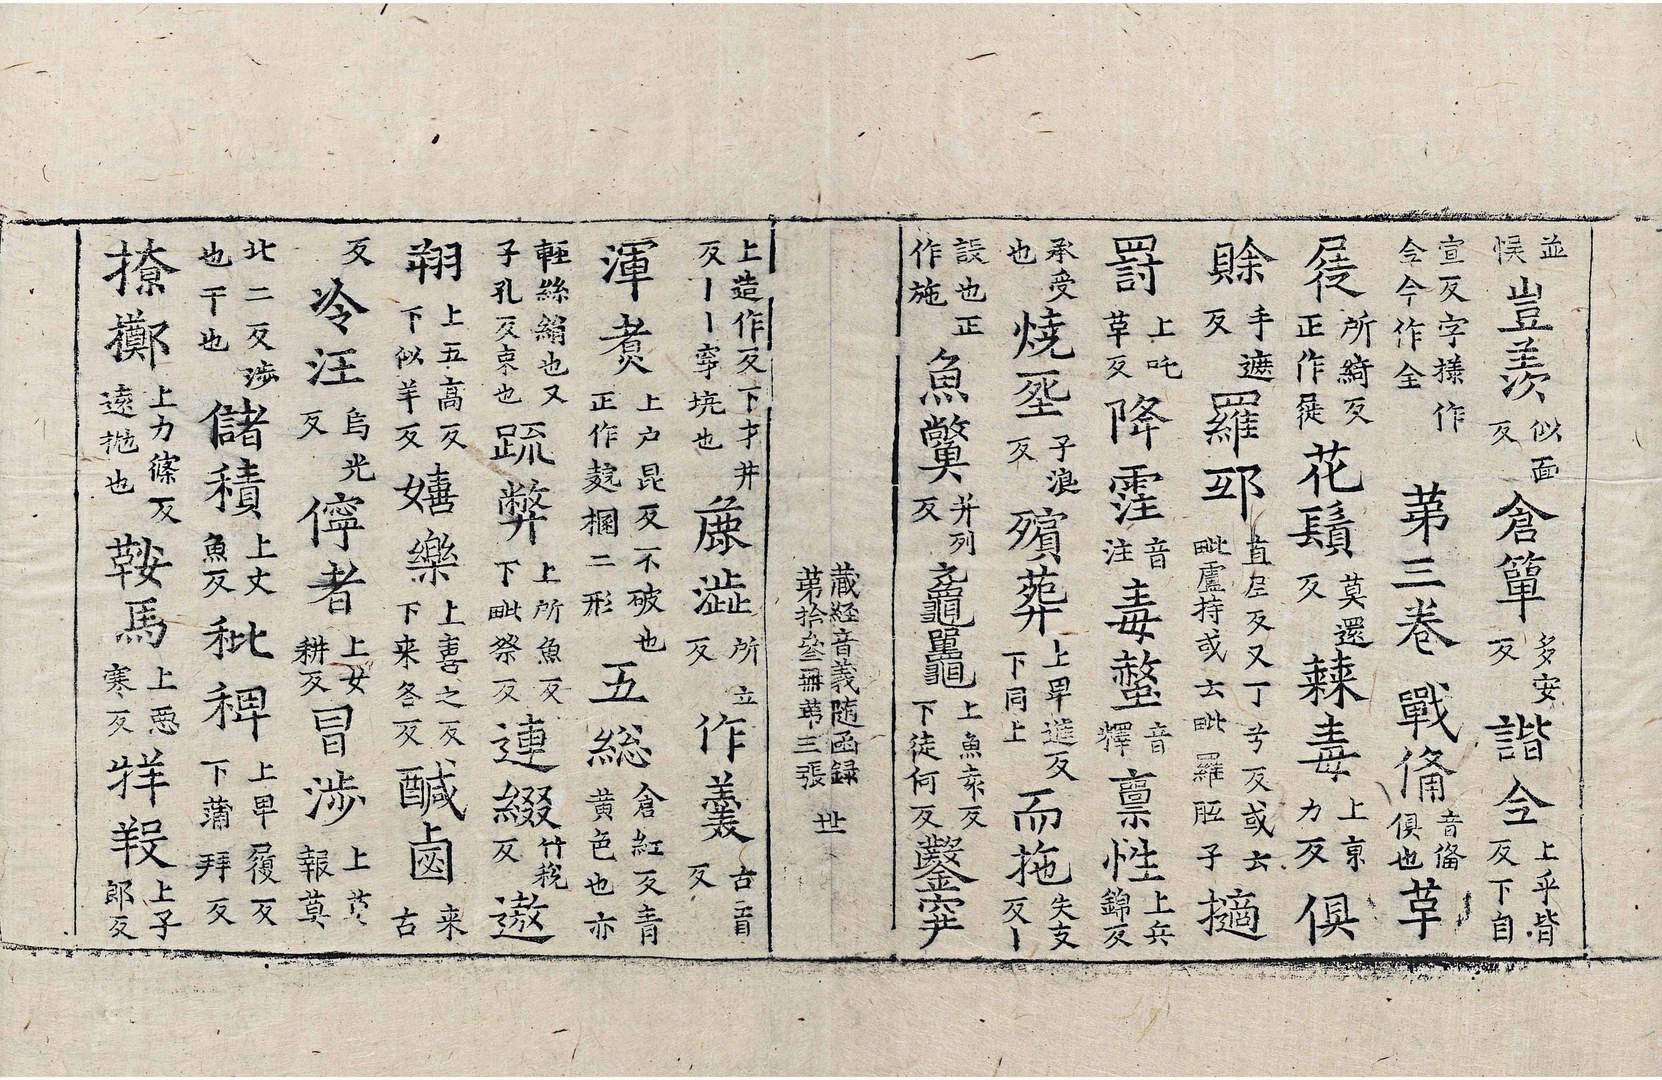 並悮豈羨似面反倉簞多安反諧令上乎皆反下自
宣反字㨾作令今作全 第三卷 戰俻音俻俱也草
屣所綺反正作屣花鬚莫還反棘毒上京力反俱
賖手遮反羅邛直尼反又丁兮反或云毗盧持或云毗羅胝子擿
罰上吒草反降霔音注毒螫音釋禀性上兵錦反
承受也燒坙子浪反殯葬上卑進反下同上而拖失支反丨
設也正作施魚鱉并列反黿鼉上魚袁反下徒何反鑿穽
藏経音義隨函録 第拾叁冊苐三張 世
上造作反下才井反丨丨穽坑也麁澁所立反作義古音反
渾煑上户昆反不破也正作䴹梱二形五總倉紅反青黄色也亦
輕絲絹也又子孔反束也踈弊上所魚反下毗祭反連綴竹税反遨
翔上五高反下似羊反嬉樂上喜之反下来各反鹹鹵来古
反冷汪烏光反儜者上女耕反冒涉上莫報莫
北二反涉也干也儲積上丈魚反秕稗上卑履反下蒲拜反
撩擲上力條反遠拋也鞍馬上惡寒反牂羖上子郎反